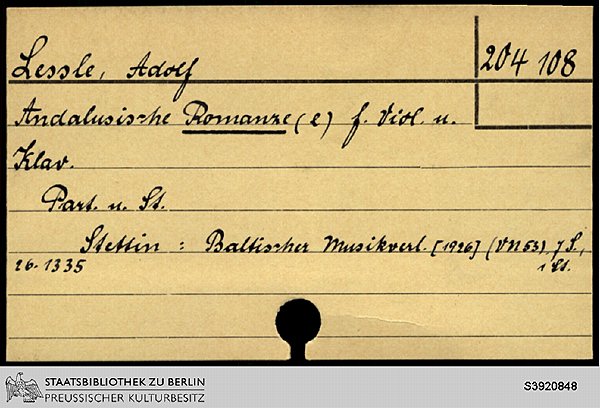 Lessle, Adolf
204 108
Andalusische Romanze (e) f. Viol. u.
Klav.
Part. u. St.
Stettin : Baltischer Musikverl. [1926] (VN 53) 7 S.,
26. 1335
1 St.
STAATSBIBLIOTHEK ZU BERLIN
PREUSSISCHER KULTURBESITZ
S3920848